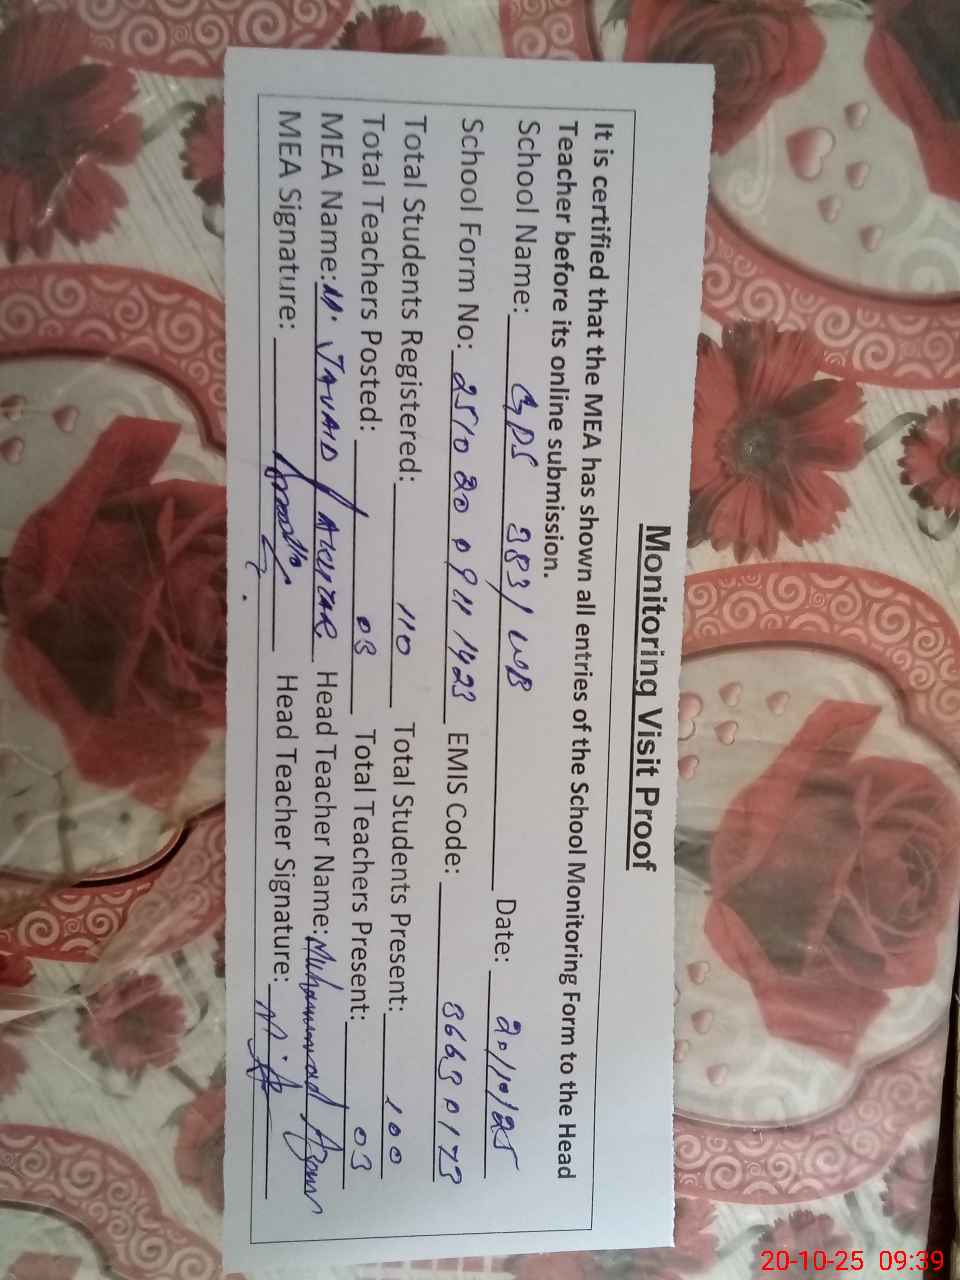 Monitoring Visit Proof
It is certified that the MEA has shown all entries of the School Monitoring Form to the Head
Teacher before its online submission.
School Name: GPS 383/WB Date: 20/10/25
School Form No: 2510 20 09 11 1423 EMIS Code: 36630173
Total Students Registered: 110 Total Students Present: 100
Total Teachers Posted: 03 Total Teachers Present: 03
MEA Name: M. JAVAID AKHTAR Head Teacher Name: Muhammad
MEA Signature: Head Teacher Signature:
20-10-25 09:39